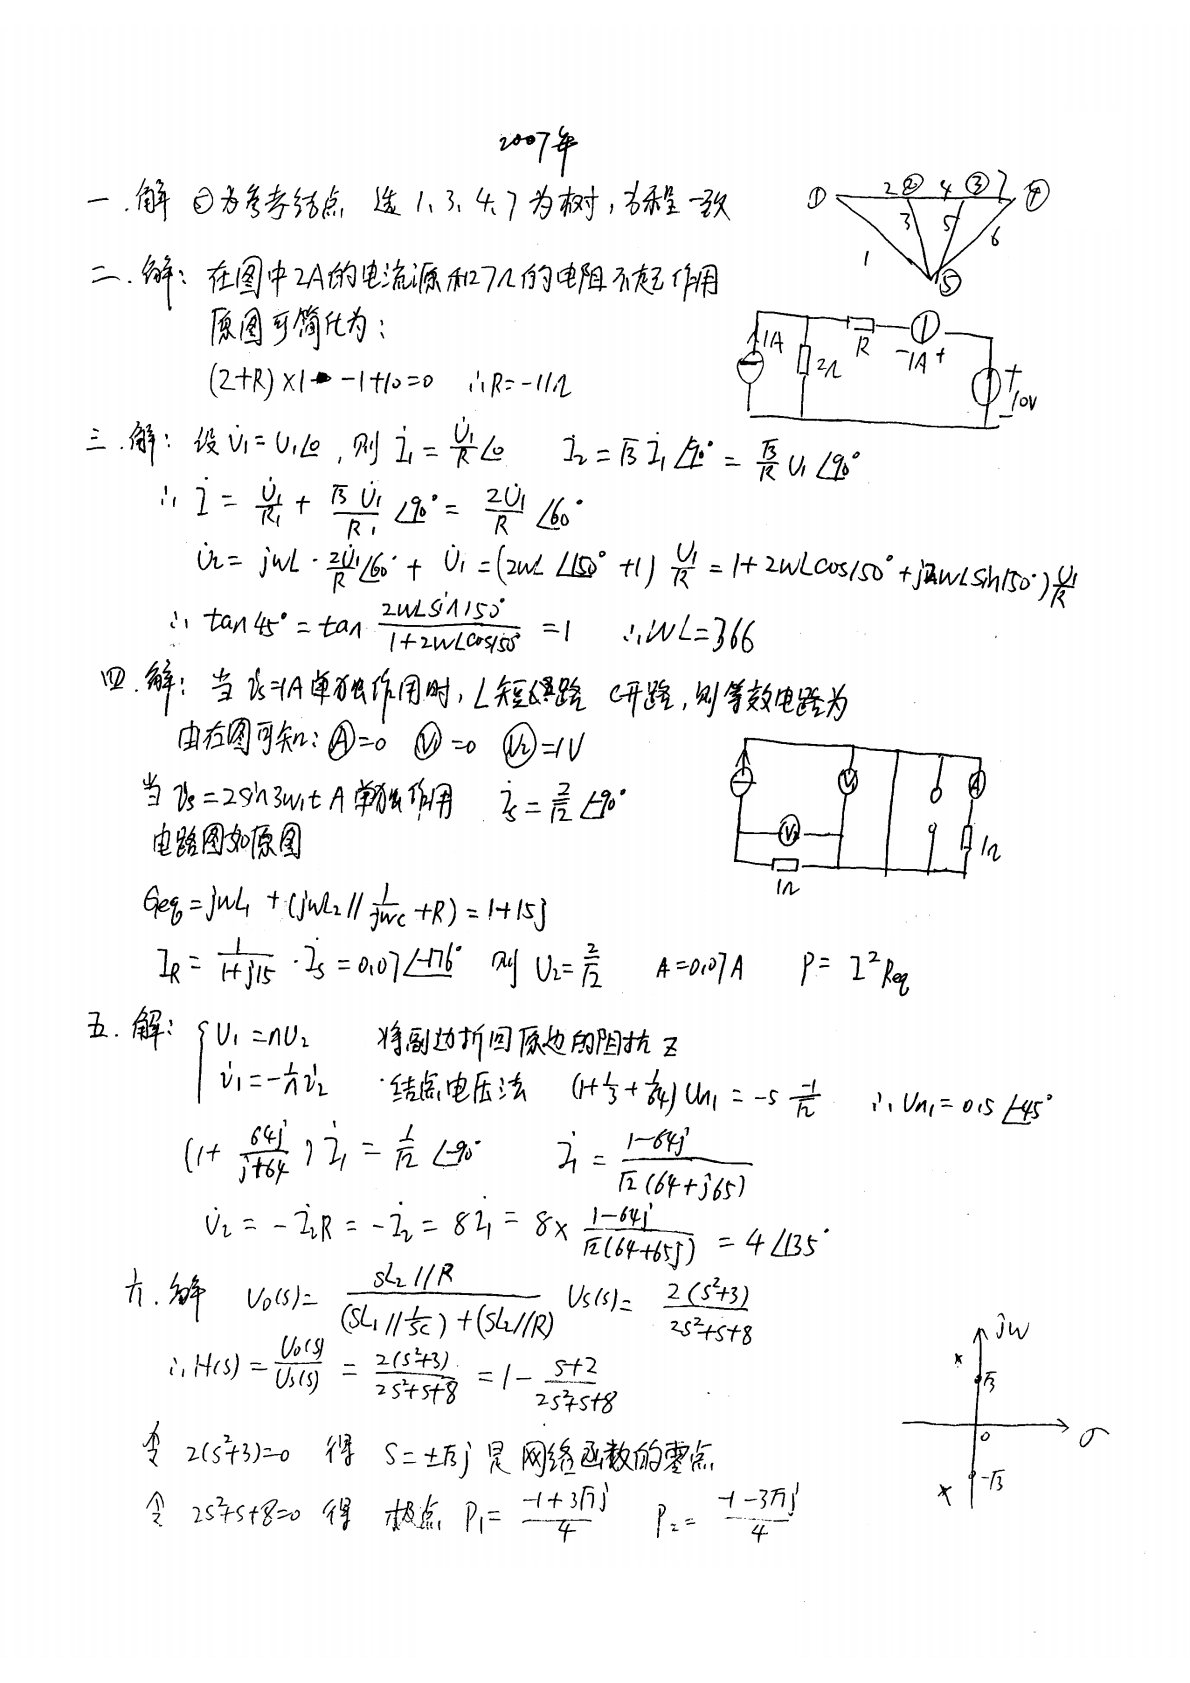 2007年
一.解 ⑤为参考结点 选1、3、4、7为树,方程一致
① 2 ② 4 ③ 7 ④
3 5 6
1
⑤
二.解: 在图中2A的电流源和27Ω的电阻不起作用
原图可简化为:
(2+R)×1 -1+10=0 ∴R=-11Ω
1A 2Ω R -1A+ + 10V -
三.解: 设U̇₁=U₁∠0, 则 İ₁=U̇₁/R∠0 İ₂=√3 İ₁∠90°=√3/R U₁∠90°
∴ İ = U̇₁/R₁ + √3U̇₁/R₁ ∠90° = 2U̇₁/R ∠60°
U̇₂= jwL · 2U̇₁/R∠60° + U̇₁ =(2wL∠150° +1) U₁/R = 1+2wLcos150°+j2wLsin150°) U₁/R
∴ tan45° = tan 2wLsin150°/(1+2wLcos150°) =1 ∴WL=366
四.解: 当is=1A单独作用时, L短路 C开路, 则等效电路为
由右图可知: Ⓐ=0 Ⓥ₁=0 Ⓥ₂=1V
V₁ V₂ A 1Ω 1Ω
当is=2sin3w₁t A 单独作用 İs=2/√2 ∠-90°
电路图如原图
Geq=jwL₁ +(jwL₂// 1/jwc +R)=1+15j
İR = 1/(1+j15) · İs=0.07∠-176° 则 U₂=2/√2 A=0.07A P= I²Req
五.解: { U₁=nU₂ 将副边折回原边的阻抗Z
i₁=-1/n i₂ 结点电压法 (1+1/3+1/64)Un₁ = -5 -1/√2 ∴Un₁=0.5∠-45°
(1+ 64j/(j+64)) İ₁ = 1/√2 ∠-90° İ₁ = (1-64j)/(√2(64+j65))
U̇₂ = -İ₂R = -İ₂ = 8İ₁ = 8× (1-64j)/(√2(64+65j)) = 4∠135°
六.解 U₀(s)= (SL₂//R)/((SL₁//1/SC)+(SL₂//R)) Us(s)= 2(s²+3)/(2s²+s+8)
∴H(s)= U₀(s)/Us(s) = 2(s²+3)/(2s²+s+8) =1- (s+2)/(2s²+s+8)
令 2(s²+3)=0 得 S=±√3j 是网络函数的零点
令 2s²+s+8=0 得 极点 P₁= (-1+3√7j)/4 P₂= (-1-3√7j)/4
jw
√3
0 σ
-√3